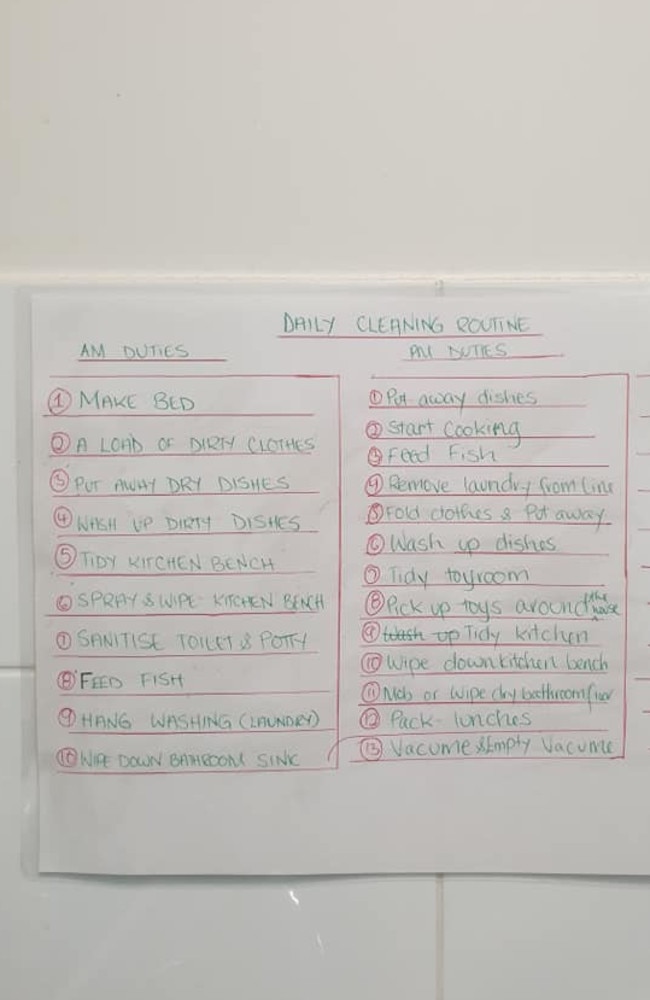 DAILY CLEANING ROUTINE
AM DUTIES
① MAKE BED
② A LOAD OF DIRTY CLOTHES
③ PUT AWAY DRY DISHES
④ WASH UP DIRTY DISHES
⑤ TIDY KITCHEN BENCH
⑥ SPRAY & WIPE KITCHEN BENCH
⑦ SANITISE TOILET & POTTY
⑧ FEED FISH
⑨ HANG WASHING (LAUNDRY)
⑩ WIPE DOWN BATHROOM SINK
PM DUTIES
① Put away dishes
② Start Cooking
③ Feed Fish
④ Remove laundry from line
⑤ Fold clothes & Put away
⑥ Wash up dishes
⑦ Tidy toyroom
⑧ Pick up toys around the house
⑨ Wash up Tidy kitchen
⑩ Wipe down kitchen bench
⑪ Mob or Wipe dry bathroom floor
⑫ Pack-lunches
⑬ Vacume & Empty Vacume